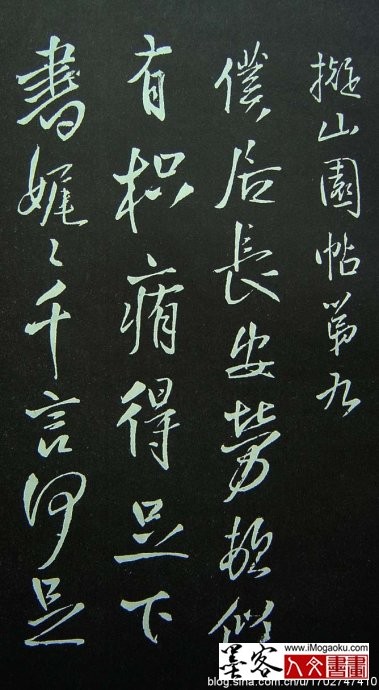 擬山園帖第九
僕居長安勞頓似
有枳痏得足下
書娓々千言何足
墨客
www.iMogaoku.com
人文書畫
blog.sina.com.cn/u/1702747410